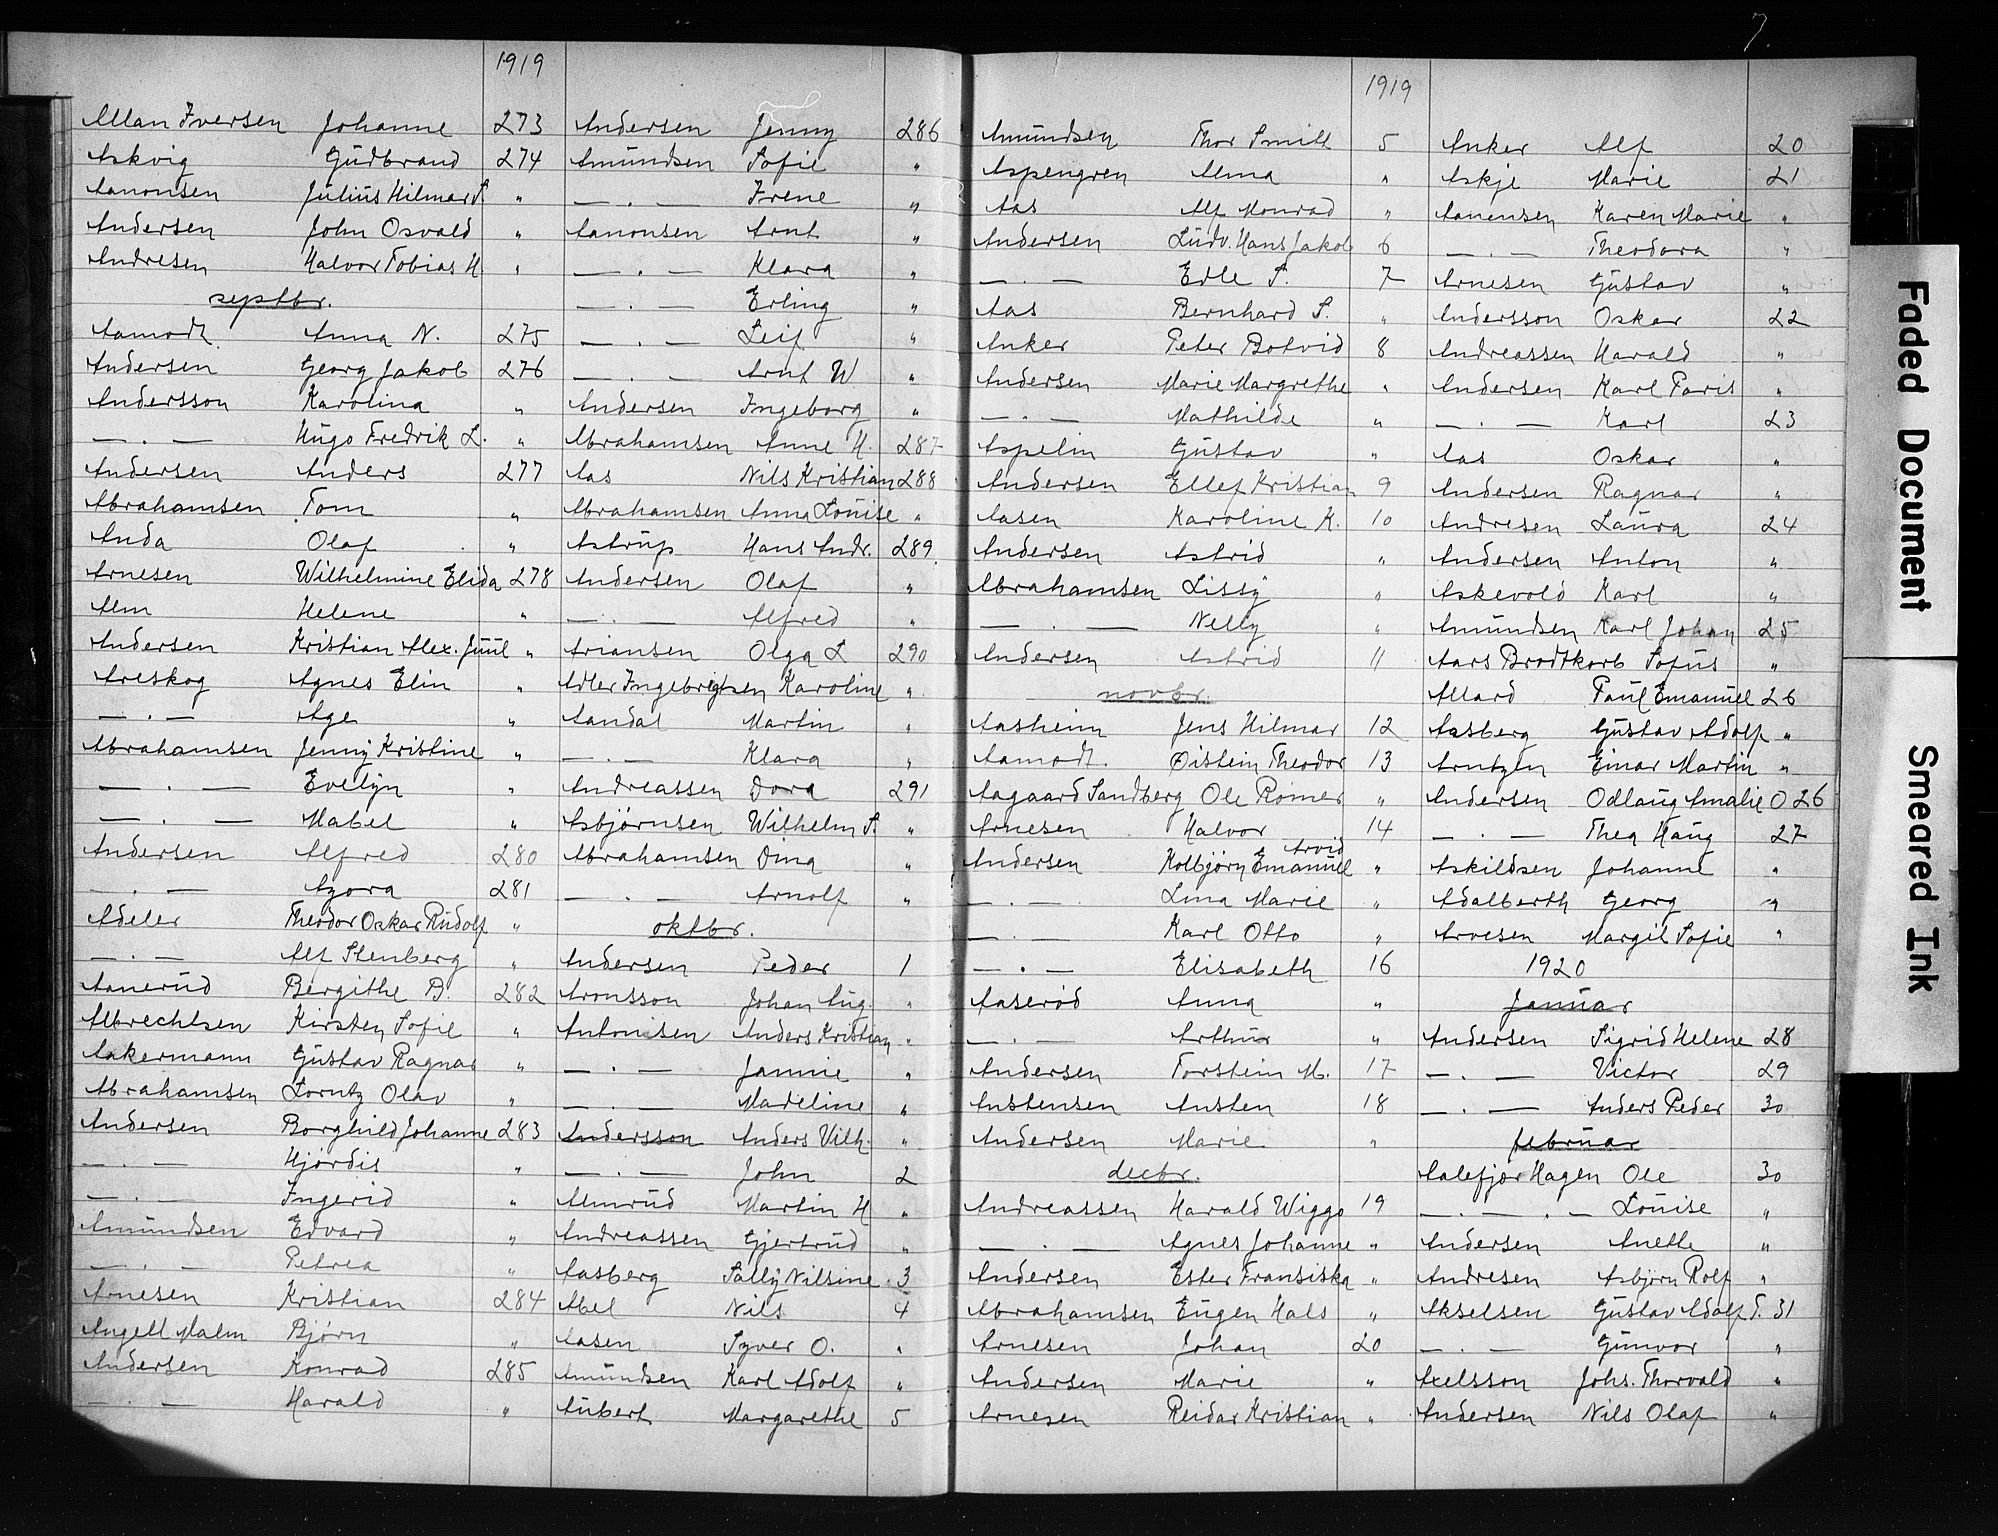 7.
1919
Allan Iversen Johanne 273
Askvig Gudbrand 274
Aanonsen Julius Hilmar S. "
Andersen John Osvald "
Andresen Halvor Tobias H. "
septbr.
Aamodt Anna N. 275
Andersen Georg Jakob 276
Andersson Karolina "
— . — Hugo Fredrik L. "
Andersen Anders 277
Abrahamsen Tom "
Anda Olaf "
Arnesen Wilhelmine Elida 278
Alm Helene "
Andersen Kristian Alex. Juul "
Areskog Agnes Elin "
— . — Age "
Abrahamsen Jenny Kristine "
— . — Evelyn "
— . — Mabel "
Andersen Alfred 280
— . — Azora 281
Adeler Theodor Oskar Rudolf "
— . — Alf Stenberg "
Aanerud Bergithe B. 282
Albrechtsen Kirsten Sofie "
Aakermann Gustav Ragnar "
Abrahamsen Lorntz Olav "
Andersen Borghild Johanne 283
— . — Hjørdis "
— . — Ingerid "
Amundsen Edvard "
— . — Petrea "
Arnesen Kristian 284
Angell Malm Bjørn "
Andersen Konrad 285
— . — Harald "
Andersen Jenny 286
Amundsen Sofie "
— . — Irene "
Aanonsen Arnt "
— . — Klara "
— . — Erling "
— . — Leif "
— . — Arnt W. "
Andersen Ingeborg "
Abrahamsen Anne H. 287
Aas Nils Kristian 288
Abrahamsen Anna Louise "
Astrup Hans Andr. 289
Andersen Olaf "
— . — Alfred "
Ariansen Olga L 290
Adler Ingebrigtsen Karoline "
Aandal Martin "
— . — Klara "
Andreassen Dora 291
Asbjørnsen Wilhelm S. "
Abrahamsen Dina "
— . — Arnolf "
oktbr.
Andersen Peder 1
Aronsson Johan Aug. "
Antonisen Anders Kristian "
— . — Jannie "
— . — Madeline "
Andersson Anders Vilh. "
— . — John 2
Almrud Martin H "
Andreassen Gjertrud "
Aasberg Sally Nilsine 3
Abel Nils 4
Aasen Syver O. "
Amundsen Karl Adolf "
Aubert Margarethe 5
1919
Amundsen Thor Smith 5
Aspengren Alma "
Aas Alf Monrad "
Andersen Ludv. Hans Jakob 6
— . — Edle S. 7
Aas Bernhard S. "
Anker Peter Botvid 8
Andersen Marie Margrethe "
— . — Mathilde "
Aspelin Gustav "
Andersen Ellef Kristian 9
Aasen Karoline K. 10
Andersen Astrid "
Abrahamsen Lissy "
— . — Nelly "
Andersen Astrid 11
novbr.
Aasheim Jens Hilmar 12
Aamodt. Øistein Theodor 13
Aagaard Sandberg Ole Rømer "
Arnesen Halvor 14
Andersen Kolbjørn Arvid Emanuel "
— . — Lina Marie "
— . — Karl Otto "
— . — Elisabeth 16
Aaserød Anna "
— . — Arthur "
Andersen Torstein M. 17
Anstensen Ansten 18
Andersen Marie "
decbr.
Andreassen Harald Wiggo 19
— . — Agnes Johanne "
Andersen Ester Fransiska "
Abrahamsen Eugen Hals "
Arnesen Johan 20
Andersen Marie "
Arnesen Reidar Kristian "
Anker Alf 20
Askje Marie 21
Aanensen Karen Marie "
— . — Theodora "
Arnesen Gustav "
Andersson Oskar 22
Andreassen Harald "
Andersen Karl Paris "
— . — Karl 23
Aas Oskar "
Andersen Ragnar "
Andresen Laura 24
Andersen Anton "
Askevold Karl "
Amundsen Karl Johan 25
Aars Brodtkorb Sofus "
Allard Paul Emanuel 26
Aasberg Gustav Adolf "
Arntzen Einar Martin "
Andersen Odlaug Amalie O 26
— . — Thea Haug 27
Askildsen Johanne "
Adalberth Georg "
Arvesen Margit Sofie "
1920
Januar
Andersen Sigrid Helene 28
— . — Victor 29
— . — Anders Peder 30
februar
Aalefjær Hagen Ole 30
— . — . — Louise "
Andersen Anette "
Andresen Asbjørn Rolf "
Akselsen Gustav Adolf T. 31
— . — Gunvor "
Axelsson Johs. Thorvald "
Andersen Nils Olaf "
Faded Document
Smeared Ink